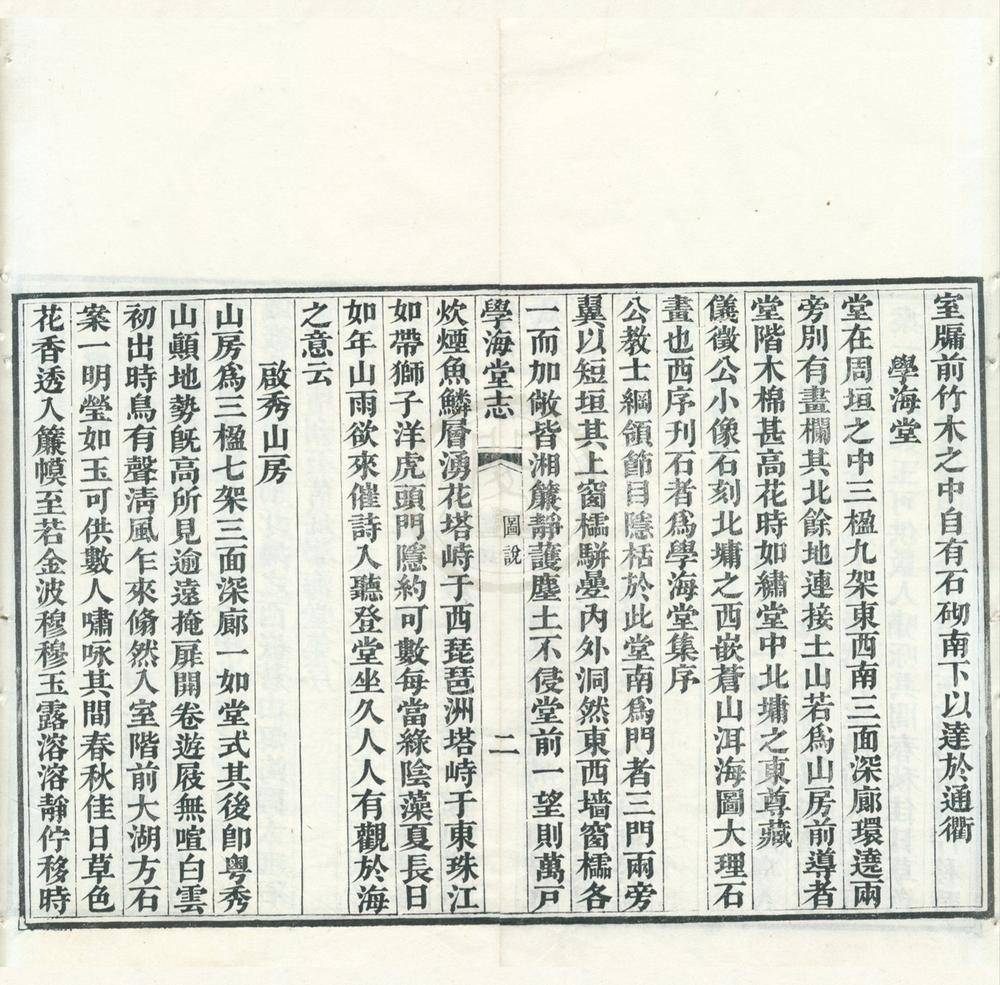 室牖前竹木之中自有石砌南下以達於通衢
學海堂
堂在周垣之中三楹九架東西南三面深廊環遶兩
旁別有畫欄其北餘地連接土山若爲山房前導者
堂階木棉甚高花時如繡堂中北墉之東尊藏
儀徵公小像石刻北墉之西嵌蒼山洱海圖大理石
畫也西序刊石者爲學海堂集序
公教士綱領節目隱栝於此堂南爲門者三門兩旁
翼以短垣其上窗櫺駢疊內外洞然東西墻窗櫺各
一而加敞皆湘簾靜護塵土不侵堂前一望則萬戶
學海堂志
圖說
二
炊煙魚鱗層湧花塔峙于西琵琶洲塔峙于東珠江
如帶獅子洋虎頭門隱約可數每當綠陰藻夏長日
如年山雨欲來催詩入聽登堂坐久人人有觀於海
之意云
啟秀山房
山房爲三楹七架三面深廊一如堂式其後卽粤秀
山顚地勢旣高所見逾遠掩扉開卷遊屐無喧白雲
初出時鳥有聲淸風乍來翛然入室階前大湖方石
案一明瑩如玉可供數人嘯咏其間春秋佳日草色
花香透入簾幙至若金波穆穆玉露溶溶靜佇移時